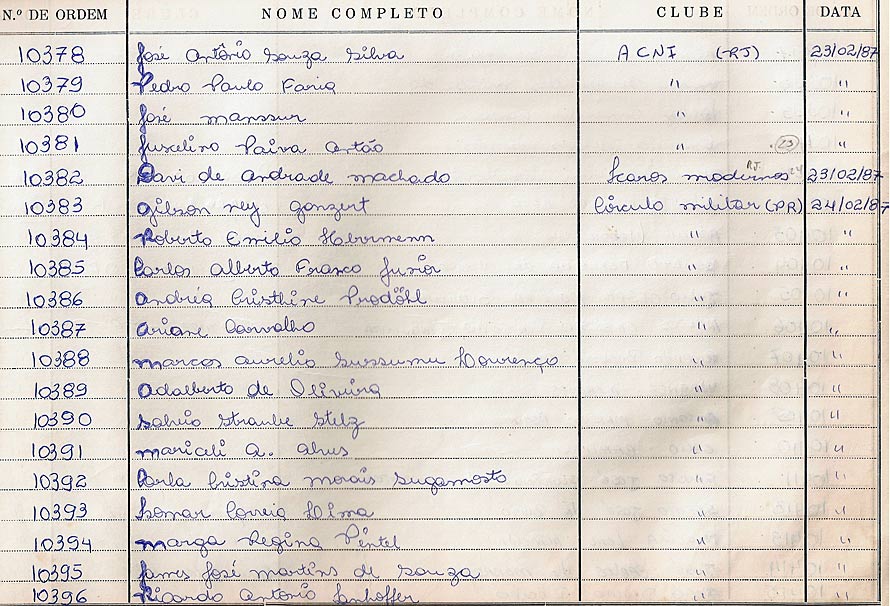 N.º DE ORDEM NOME COMPLETO CLUBE DATA
10378 José Antônio Souza Silva ACNI (-RJ) 23/02/87
10379 Pedro Paulo Faria " "
10380 José Manssur " "
10381 Juscelino Paiva Antão " 23 "
10382 Davi de Andrade Machado Icaros Modernos RJ 24 23/02/87
10383 Gilson Ney Gonzert Círculo Militar (PR) 24/02/87
10384 Roberto Emilio " "
10385 Carlos Alberto Franco Junior " "
10386 Andréa Cristhine Prodöhl " "
10387 Ariane Carvalho " "
10388 Marcos Aurelio Sussumu Lourenço " "
10389 Adalberto de Oliveira " "
10390 Salvio Straube Stelz " "
10391 Mariceli A. Alves " "
10392 Carla Cristina Morais Sugamosto " "
10393 Lomar Correia Lima " "
10394 Marga Regina Pintel " "
10395 James José Martins de Souza " "
10396 Ricardo Antonio " "